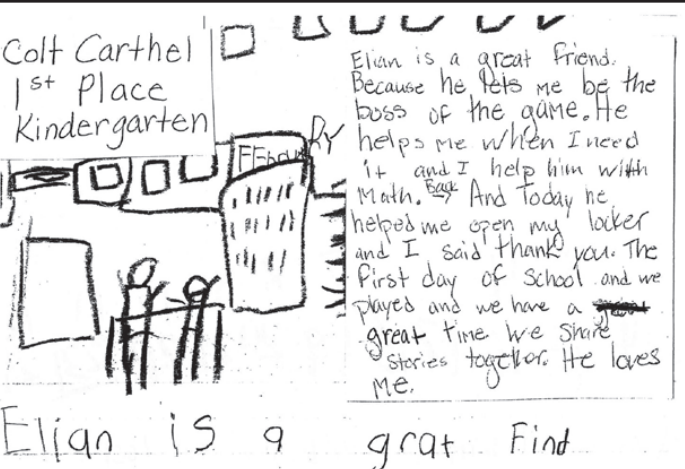 Colt Carthel
1st Place
Kindergarten
Elian is a great friend.
Because he lets me be the
boss of the game. He
helps me when I need
it and I help him with
Math. Back And Today he
helped me open my locker
and I said thank you. The
first day of School and we
played and we have a
great time. We Share
Stories together. He loves
Me.
Elian is a grat Find